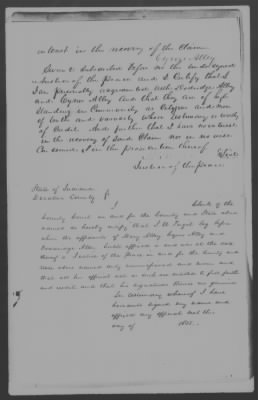 interest in the recovery of the Claim
Cyrus Alley
Sworn to & Subscribed before me the undersigned
a Justice of the peace and I Certify that I
am personally acquainted with Dodridge Alley
and Cyrus Alley and that they are of high
Standing in Community as Citizens and men
of truth and veracity whose testimony is worthy
of Credit. And further that I have no interest
in the recovery of said Claim nor in no wise
Concerned in the prosecution thereof
Seal
Justice of the peace
State of Indiana
Decatur County
I Clerk of the
County Court in and for the County and State above
named do hereby certify that J. B. before
whom the affidavits of Mary Alley Cyrus Alley and
Alley was the
a Justice of the Peace in and for the County and
State above named duly commissioned and sworn and
that all his official acts as such are entitled to full faith
and credit and that his signature thereto are genuine
In testimony whereof I have
hereunto signed my name and
affixed my official seal this
day of 185